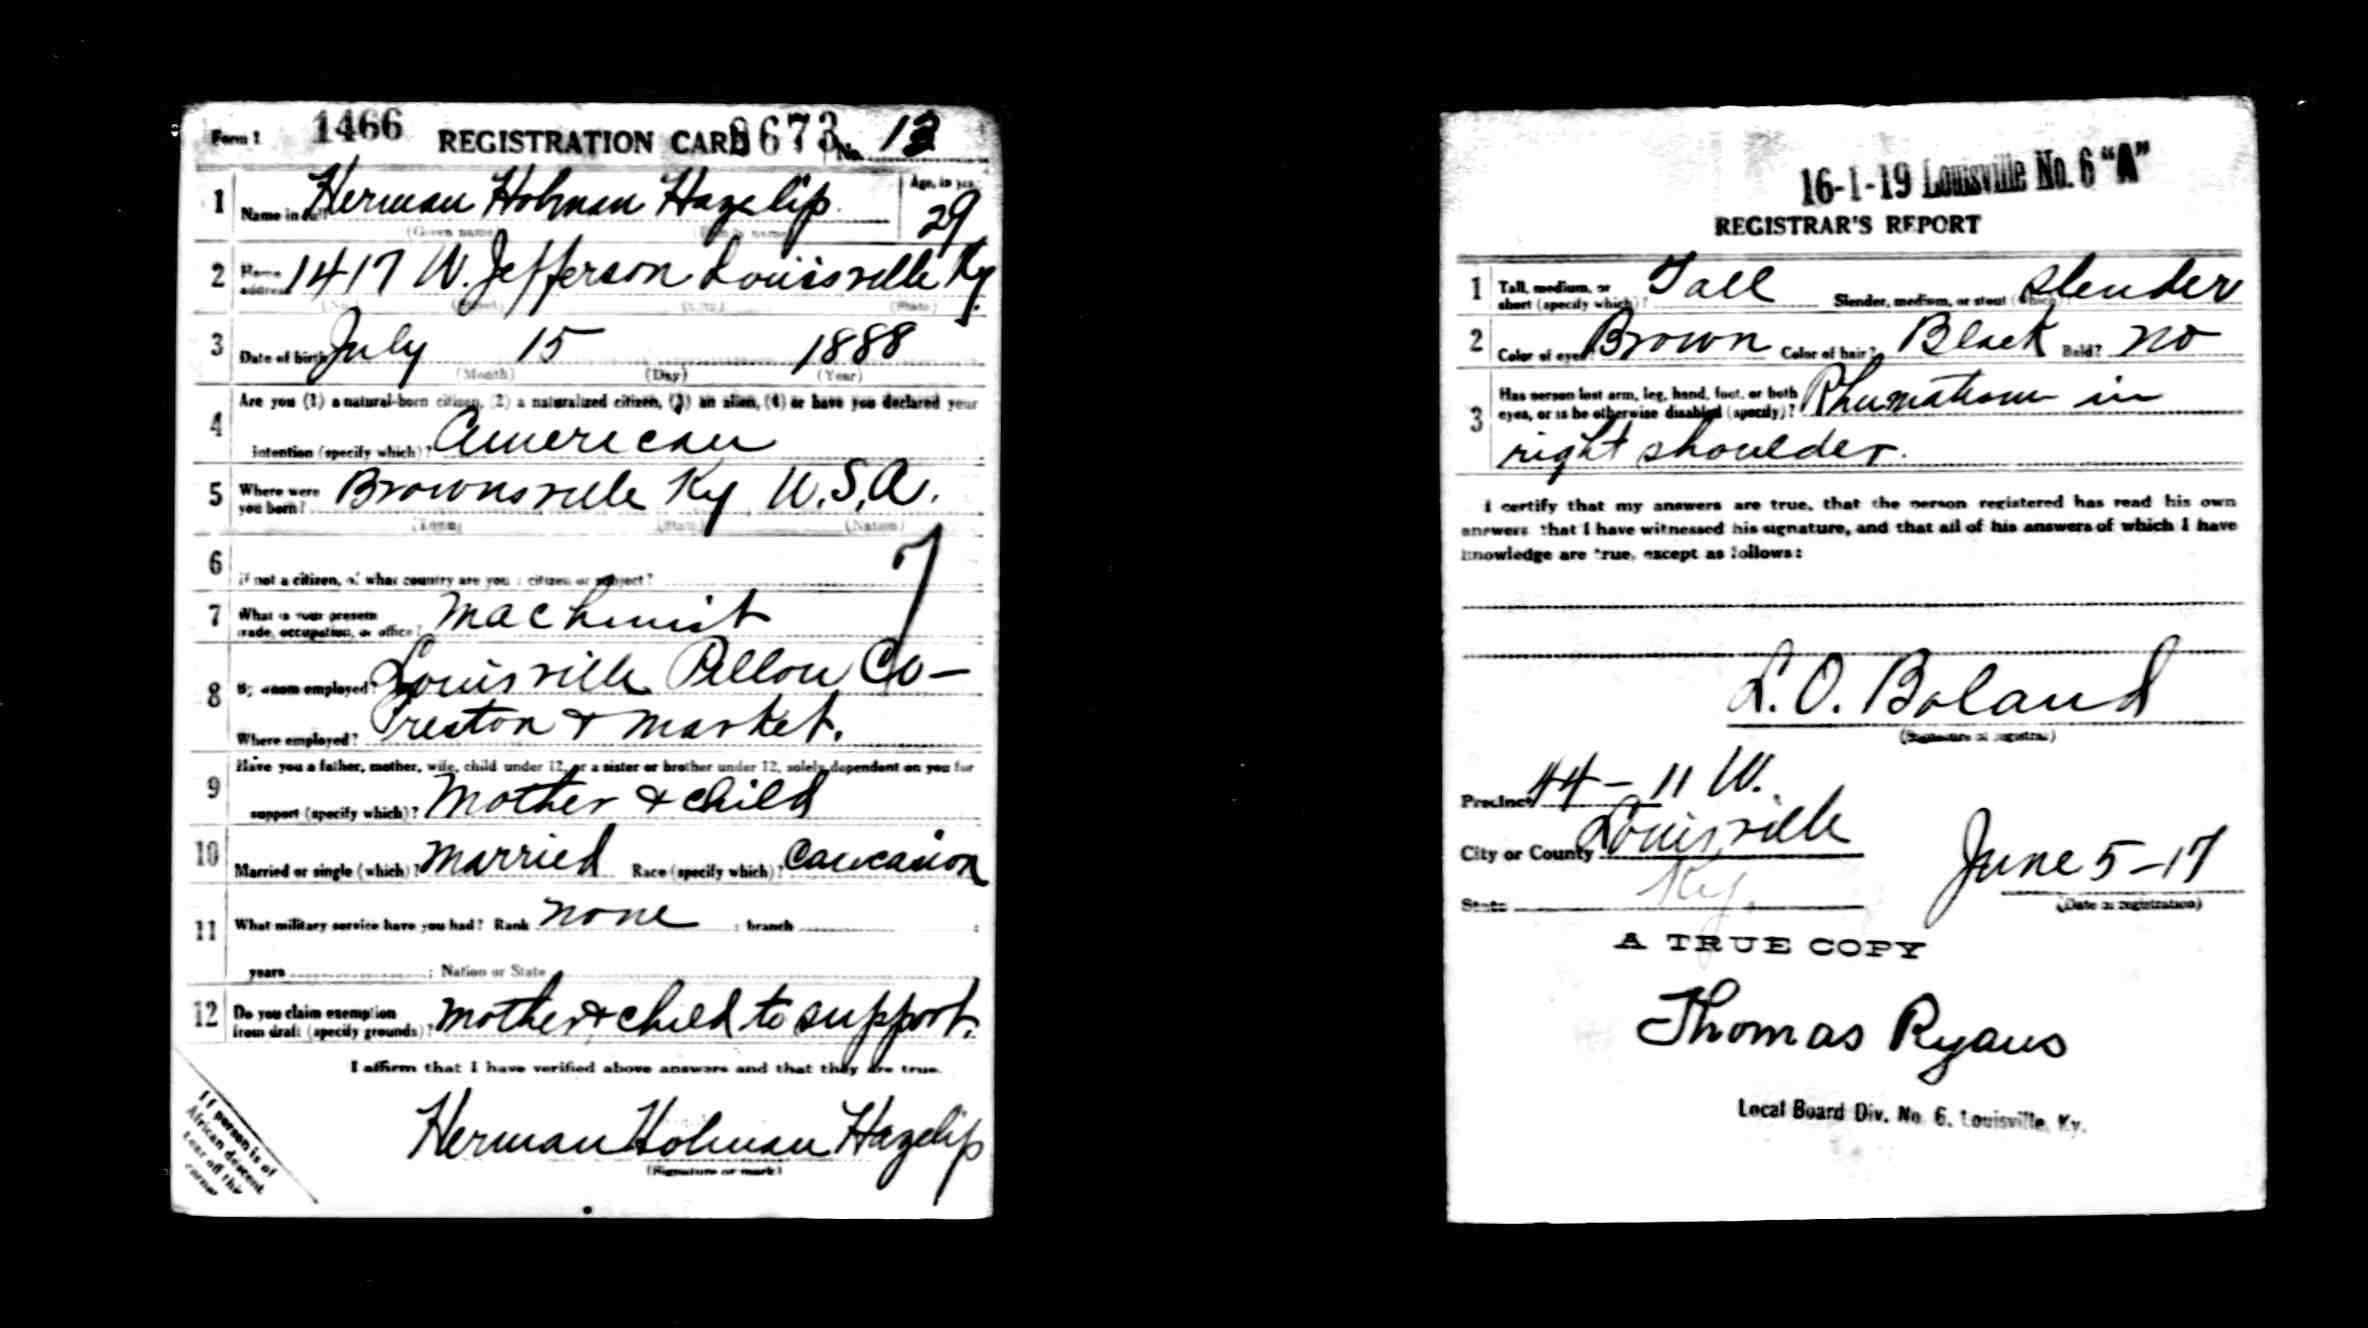 Form 1 1466 REGISTRATION CARD 8673 No. 13
1 Name in full Herman Holman Hazelip Age, in yrs. 29
(Given name) (Family name)
2 Home address 1417 W. Jefferson Louisville Ky.
(No.) (Street) (City) (State)
3 Date of birth July 15 1888
(Month) (Day) (Year)
4 Are you (1) a natural-born citizen, (2) a naturalized citizen, (3) an alien, (4) or have you declared your
intention (specify which)? American
5 Where were you born? Brownsville Ky U.S.A.
(Town) (State) (Nation)
6 If not a citizen, of what country are you a citizen or subject?
7 What is your present trade, occupation, or office? Machinist
8 By whom employed? Louisville Pillow Co—
Where employed? Preston & Market.
9 Have you a father, mother, wife, child under 12, or a sister or brother under 12, solely dependent on you for
support (specify which)? Mother & child
10 Married or single (which)? Married Race (specify which)? Caucasion
11 What military service have you had? Rank none ; branch ;
years ; Nation or State
12 Do you claim exemption from draft (specify grounds)? Mother & child to support.
I affirm that I have verified above answers and that they are true.
Herman Holman Hazelip
(Signature or mark)
If person is of
African descent
tear off this
corner
16-1-19 Louisville No. 6 "A"
REGISTRAR'S REPORT
1 Tall, medium, or short (specify which)? Tall Slender, medium, or stout (which)? Slender
2 Color of eyes? Brown Color of hair? Black Bald? No
3 Has person lost arm, leg, hand, foot, or both eyes, or is he otherwise disabled (specify)? Rhumatism in
right shoulder.
I certify that my answers are true, that the person registered has read his own
answers, that I have witnessed his signature, and that all of his answers of which I have
knowledge are true, except as follows:
L. O. Boland
(Signature of registrar)
Precinct 44 – 11 W.
City or County Louisville
State Ky. June 5 – 17
(Date of registration)
A TRUE COPY
Thomas Ryans
Local Board Div. No. 6. Louisville, Ky.